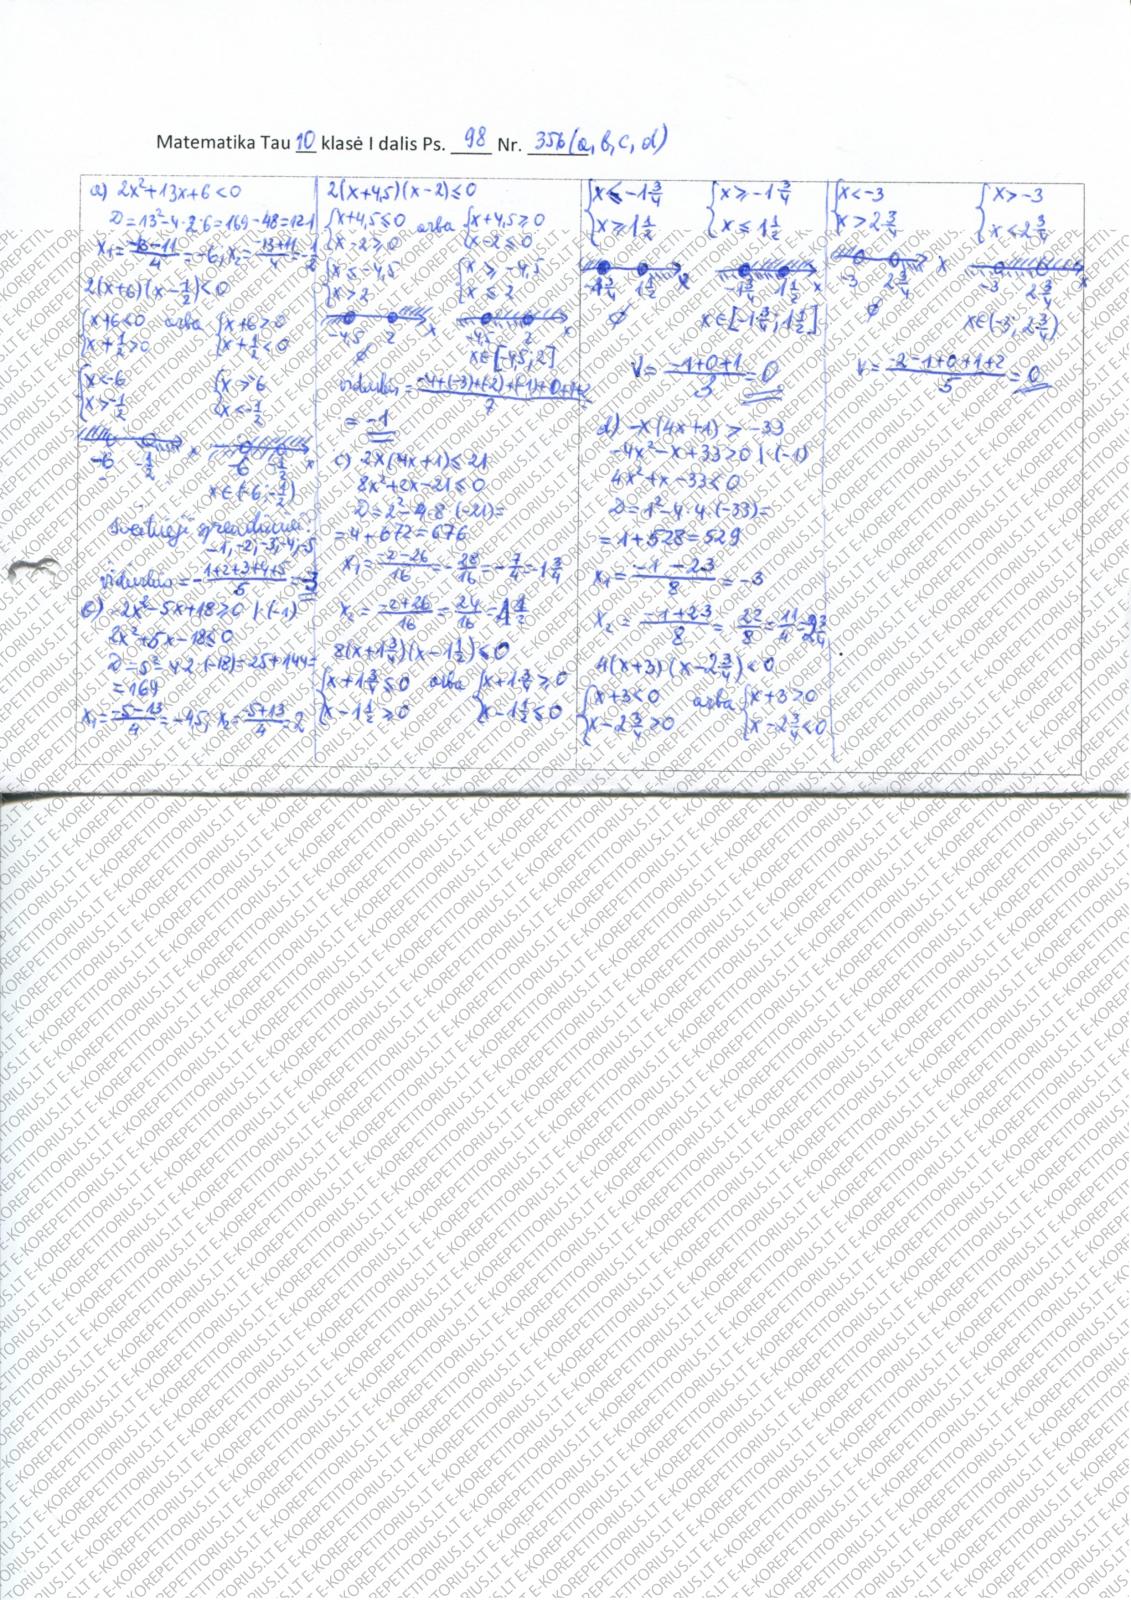 Matematika Tau 10 klasė I dalis Ps. 98 Nr. 356 (a, b, c, d)
a) 2x²+13x+6<0
D=13²-4·2·6=169-48=121
x₁=(-13-11)/4=-6, x₂=(-13+11)/4=-1/2
2(x+6)(x-1/2)<0
{x+6<0 arba {x+6>0
{x+1/2>0 {x+1/2<0
{x<-6 {x>-6
{x>-1/2 {x<-1/2
-6 -1/2 x -6 -1/2 x
x∈(-6;-1/2)
sveikieji sprendiniai:
-1, -2, -3, -4, -5
vidurkis=-(1+2+3+4+5)/5=-3
b) -2x²-5x+18≥0 |·(-1)
2x²+5x-18≤0
D=5²-4·2·(-18)=25+144=
=169
x₁=(-5-13)/4=-4,5; x₂=(-5+13)/4=2
2(x+4,5)(x-2)≤0
{x+4,5≤0 arba {x+4,5≥0
{x-2≥0 {x-2≤0
{x≤-4,5 {x≥-4,5
{x≥2 {x≤2
-4,5 2 x -4,5 2 x
∅ x∈[-4,5;2]
vidurkis=(-4+(-3)+(-2)+(-1)+0+1+2)/7
=-1
c) 2x(4x+1)≤21
8x²+2x-21≤0
D=2²-4·8·(-21)=
=4+672=676
x₁=(-2-26)/16=-28/16=-7/4=-1 3/4
x₂=(-2+26)/16=24/16=1 1/2
8(x+1 3/4)(x-1 1/2)≤0
{x+1 3/4≤0 arba {x+1 3/4≥0
{x-1 1/2≥0 {x-1 1/2≤0
{x≤-1 3/4 {x≥-1 3/4
{x≥1 1/2 {x≤1 1/2
-1 3/4 1 1/2 x -1 3/4 1 1/2 x
∅ x∈[-1 3/4;1 1/2]
V=(-1+0+1)/3=0
d) -x(4x+1)>-33
-4x²-x+33>0 |·(-1)
4x²+x-33<0
D=1²-4·4·(-33)=
=1+528=529
x₁=(-1-23)/8=-3
x₂=(-1+23)/8=22/8=11/4=2 3/4
4(x+3)(x-2 3/4)<0
{x+3<0 arba {x+3>0
{x-2 3/4>0 {x-2 3/4<0
{x<-3 {x>-3
{x>2 3/4 {x<2 3/4
-3 2 3/4 x -3 2 3/4 x
∅ x∈(-3;2 3/4)
V=(-2-1+0+1+2)/5=0
E-KOREPETITORIUS.LT